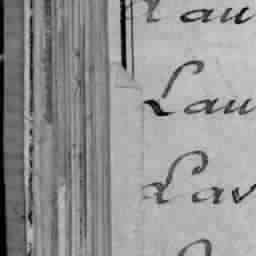 Lau
Lau
Lav